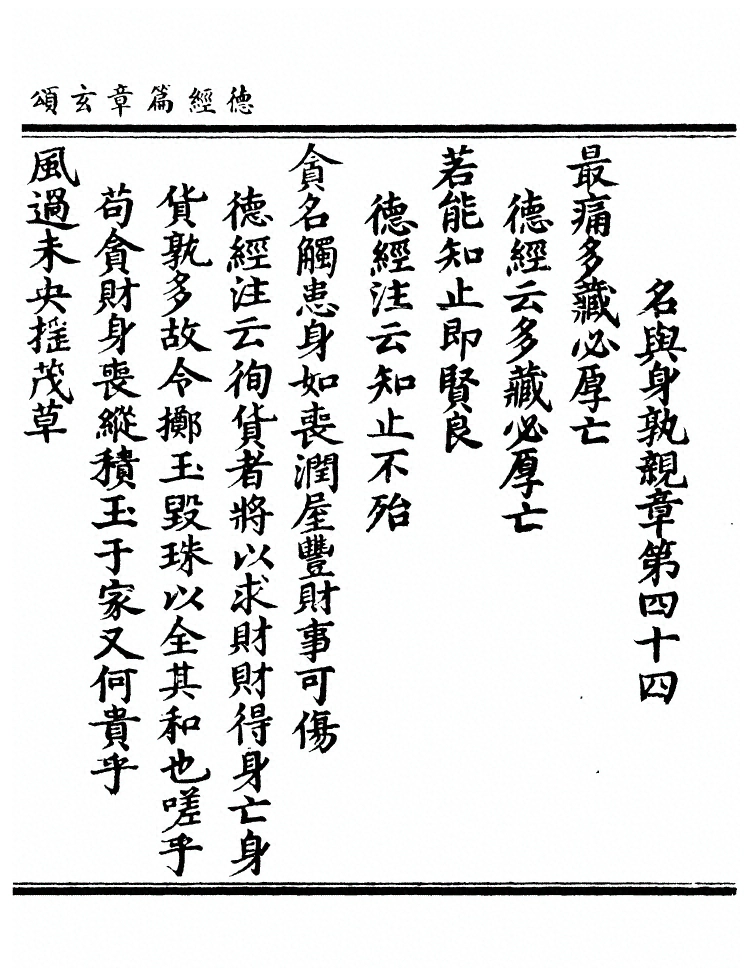 德經篇章玄頌
名與身孰親章第四十四
最痛多藏必厚亡
德經云多藏必厚亡
若能知止即賢良
德經注云知止不殆
貪名觸患身如喪潤屋豐財事可傷
德經注云徇貨者將以求財財得身亡身
貨孰多故令擲玉毀珠以全其和也嗟乎
苟貪財身喪縱積玉于家又何貴乎
風過未央搖茂草